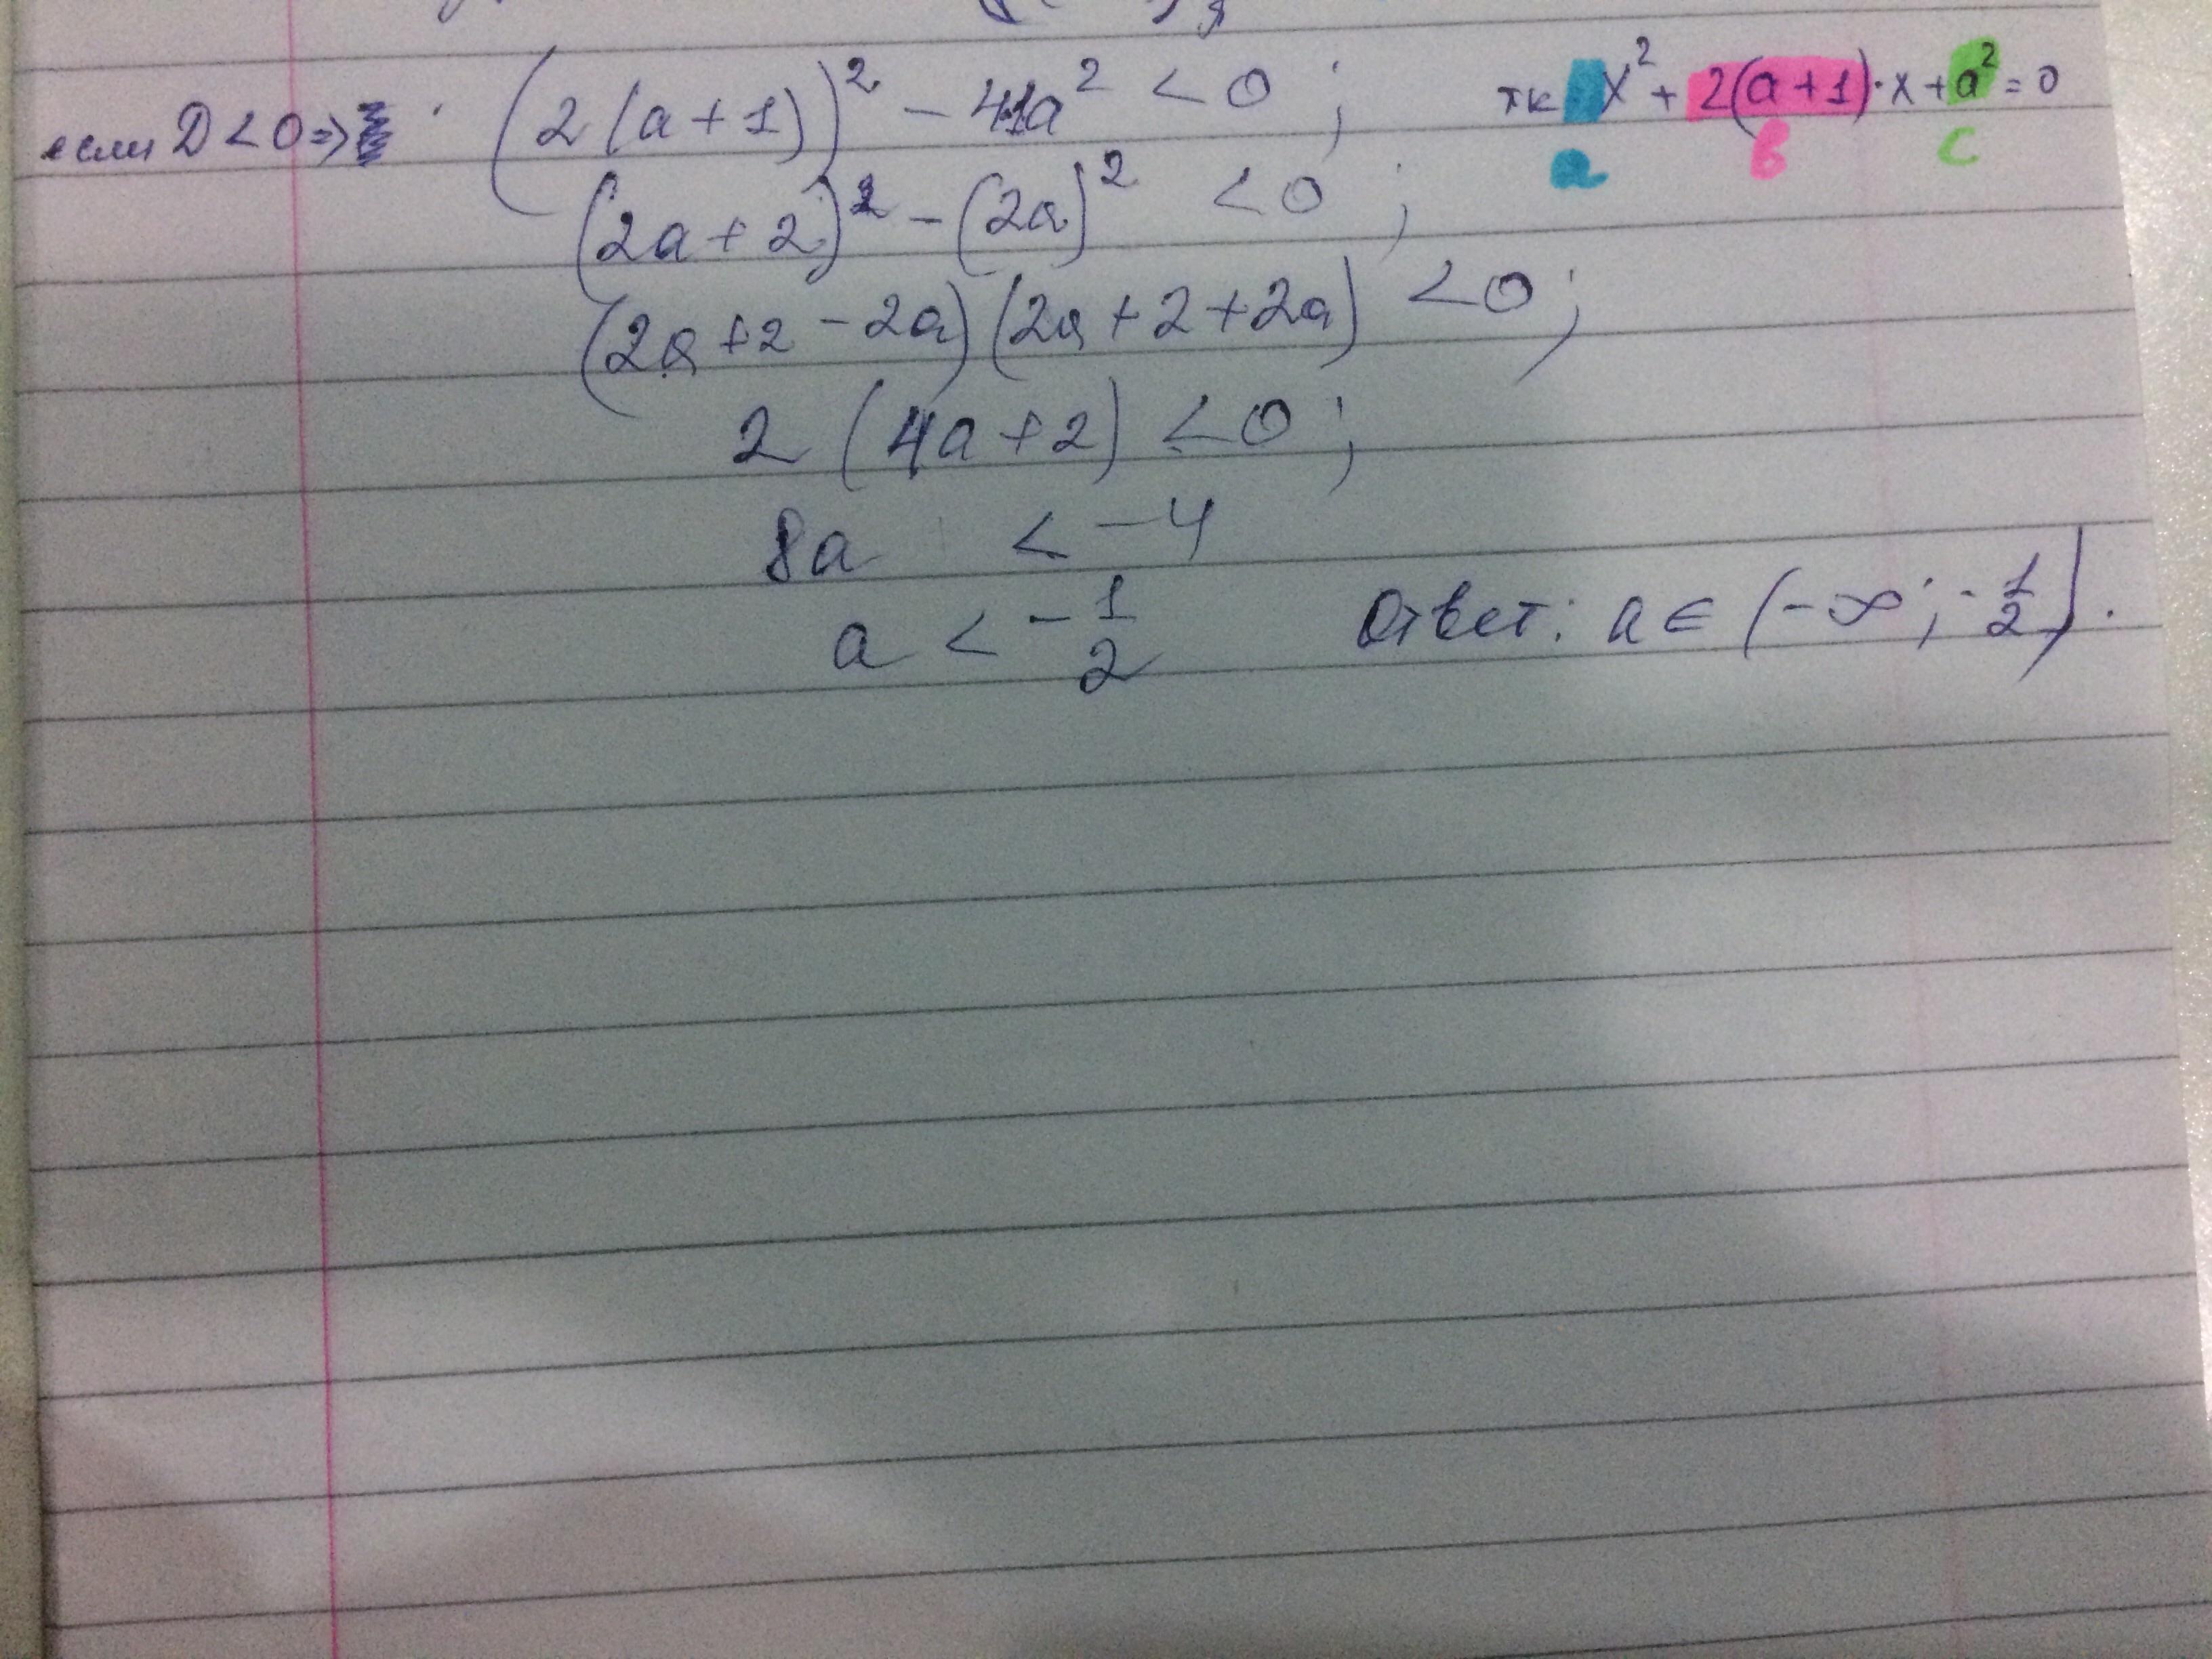 если D < 0 => (2(a+1))² - 4·1a² < 0 ; тк x² + 2(a+1)·x + a² = 0
a b c
(2a+2)² - (2a)² < 0 ;
(2a+2-2a)(2a+2+2a) < 0 ;
2 (4a+2) < 0 ;
8a < -4
a < -1/2 Ответ: a ∈ (-∞; -1/2).